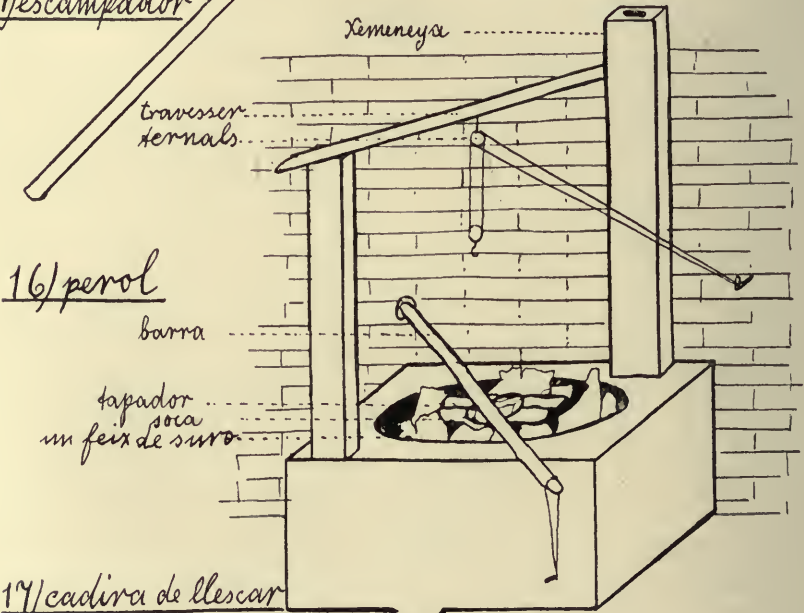 descampador
Xemeneya
travesser
ternals
16/ perol
barra
tapador
soca
un feix de suro
17/ cadira de llescar